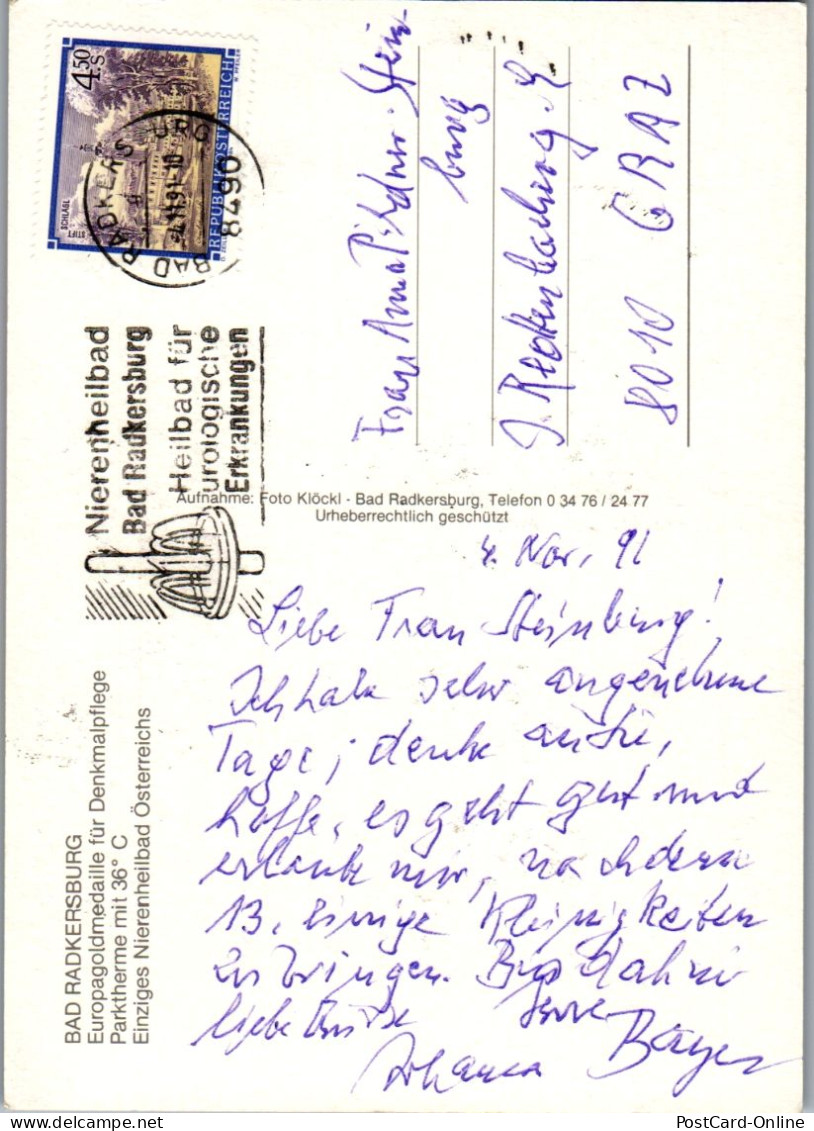 4.50
S
REPUBLIK ÖSTERREICH
STIFT SCHLÄGL
BAD RADKERSBURG
-4.11.91-10
8490
Nierenheilbad
Bad Radkersburg
Heilbad für
urologische
Erkrankungen
Frau Anna Pichner-Stein-
burg
Rechbauerg.
8010 GRAZ
Aufnahme: Foto Klöckl - Bad Radkersburg, Telefon 0 34 76 / 24 77
Urheberrechtlich geschützt
BAD RADKERSBURG
Europagoldmedaille für Denkmalpflege
Parktherme mit 36° C
Einziges Nierenheilbad Österreichs
4. Nov. 91
Liebe Frau Steinburg!
Ich habe sehr angenehme
Tage, denke an Sie,
hoffe, es geht gut und
erlaube mir, nach dem
13. einige Kleinigkeiten
zu bringen. Bis dahin
liebe Grüße Ihre
Johanna Bayer
PostCard-Online